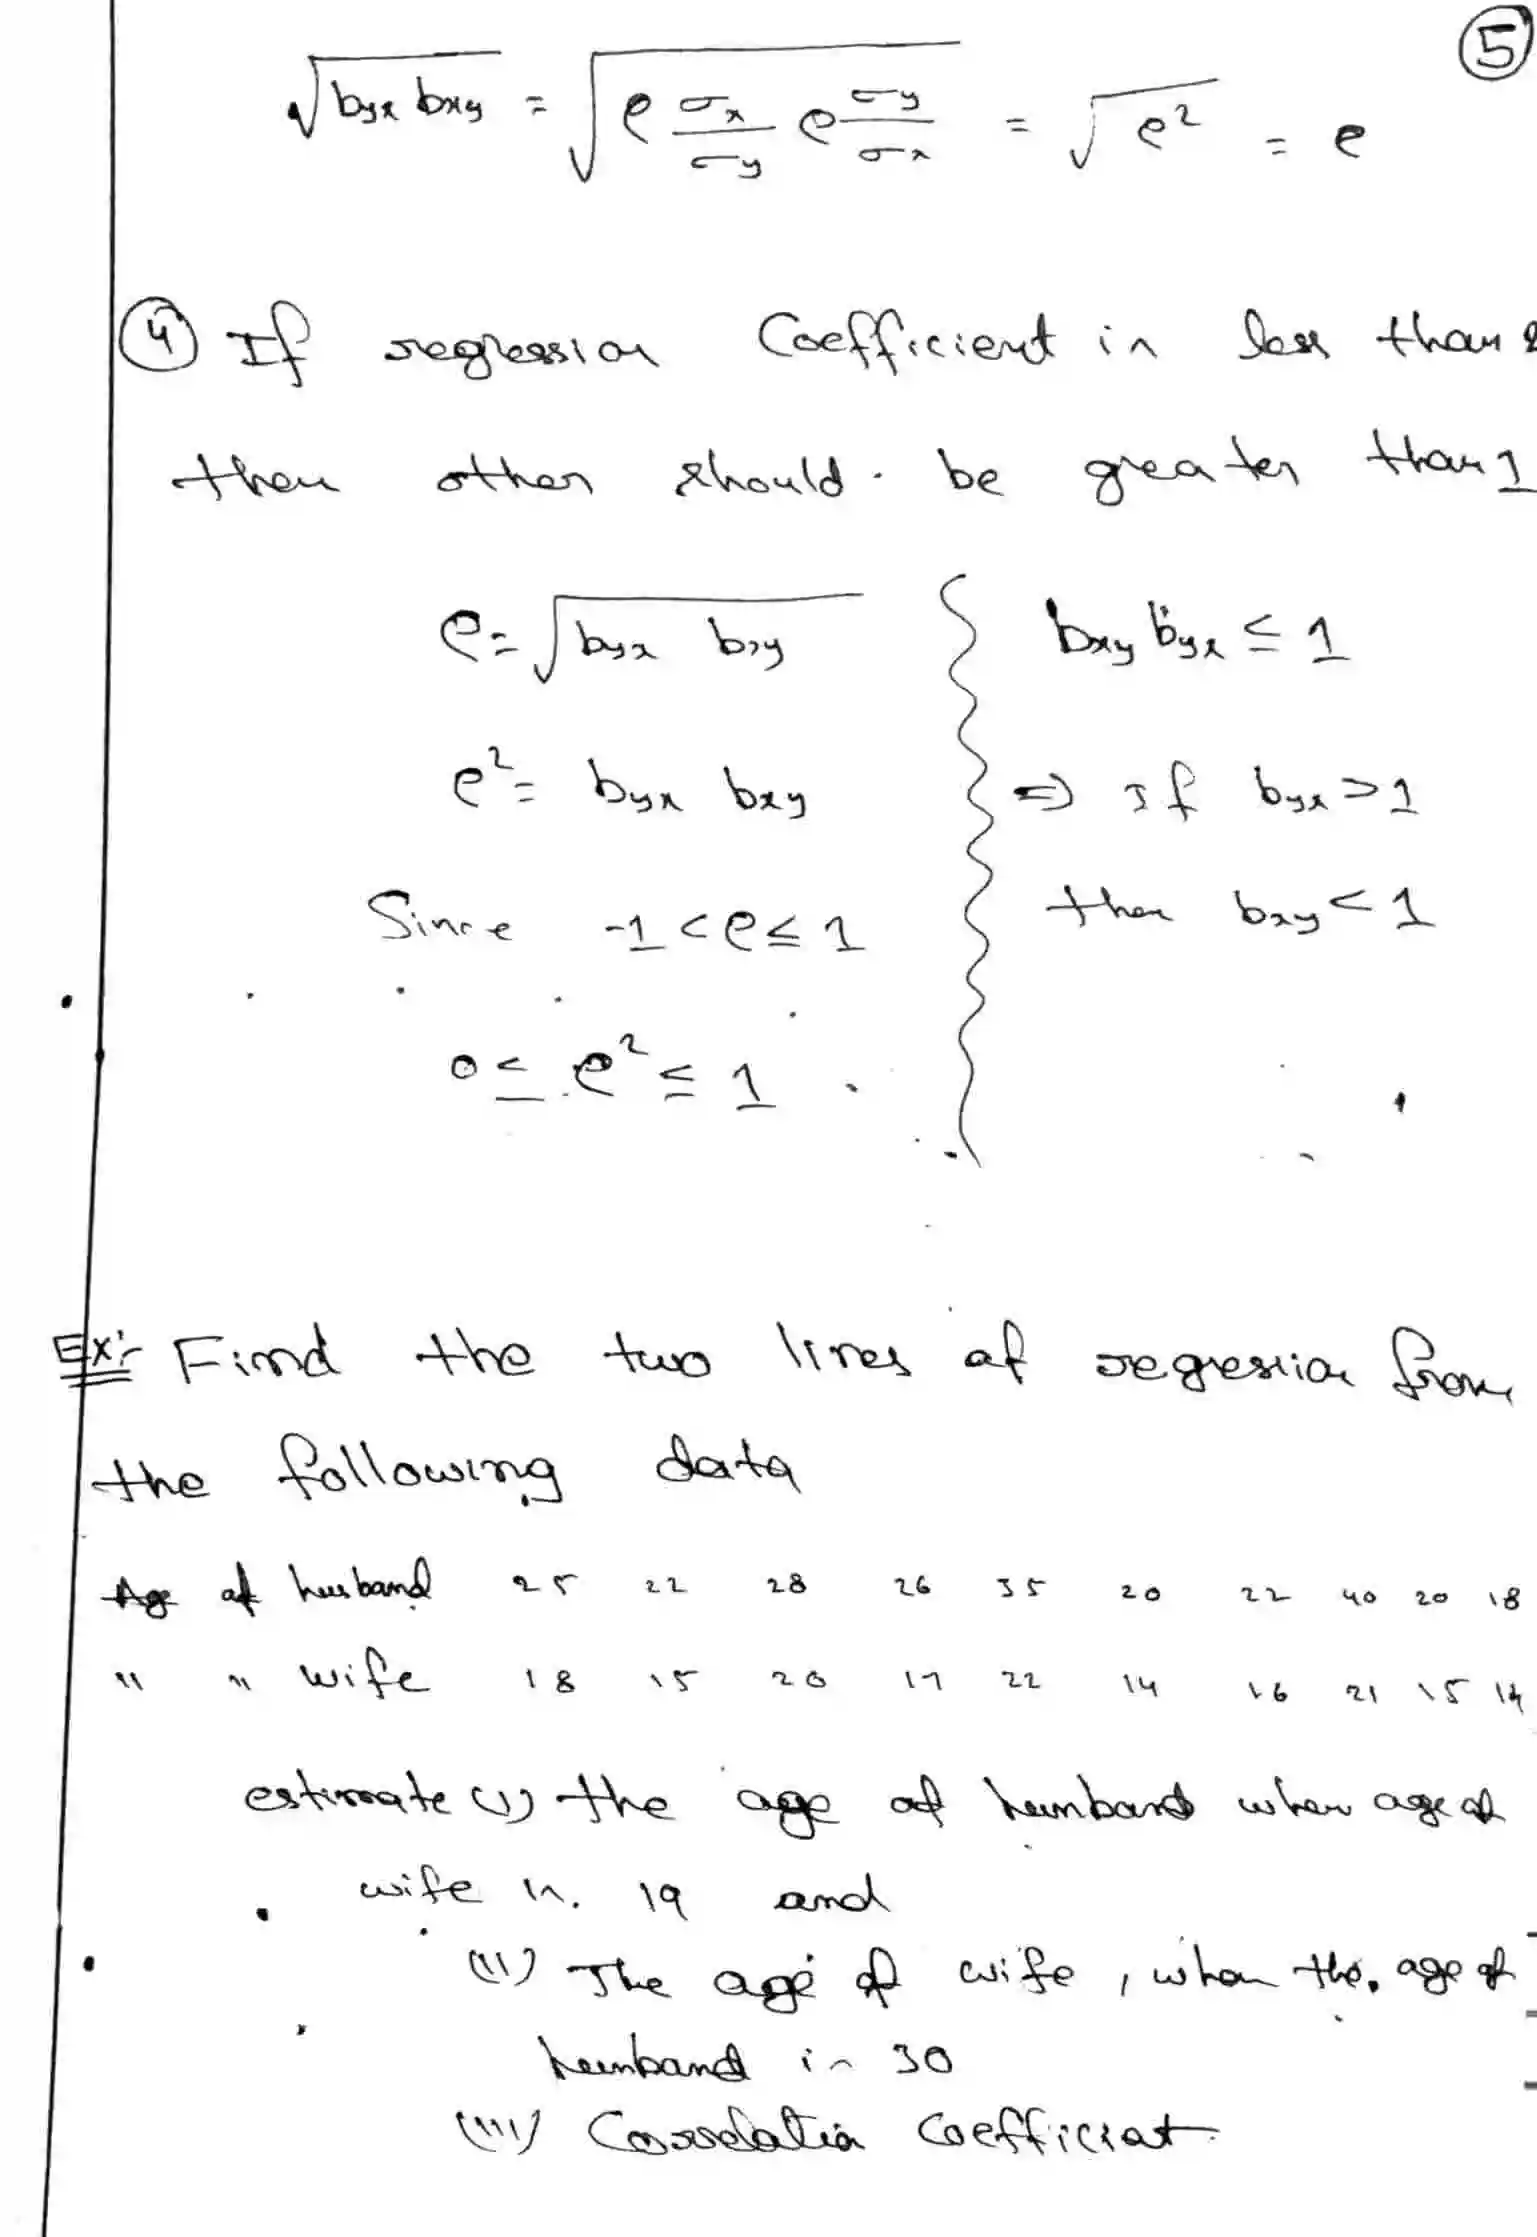 5
√(byx bxy) = √(ρ σx/σy ρ σy/σx) = √ρ² = ρ
④ If regression Coefficient is less than 1
then other should be greater than 1
ρ = √(byx bxy)
ρ² = byx bxy
Since -1 < ρ ≤ 1
0 ≤ ρ² ≤ 1
bxy byx ≤ 1
⇒ If byx > 1
then bxy < 1
Ex:- Find the two lines of regression from
the following data
Age of husband 25 22 28 26 35 20 22 40 20 18
" " wife 18 15 20 17 22 14 16 21 15 14
estimate (i) the age of husband when age of
wife is 19 and
(ii) The age of wife, when the age of
husband is 30
(iii) Correlation Coefficient